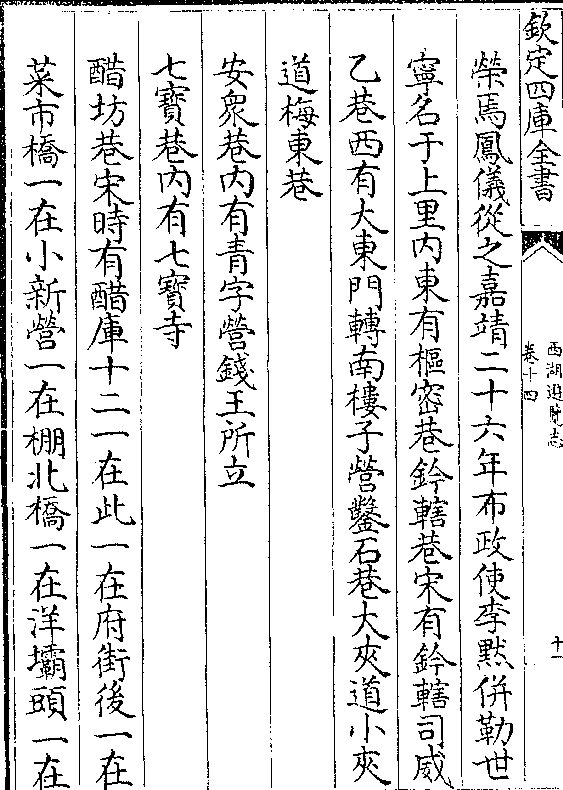 欽定四庫全書
西湖遊覽志
卷十四
十一
榮馬鳳儀從之嘉靖二十六年布政使李黙併勒世
寧名于上里内東有樞密巷鈐轄巷宋有鈐轄司威
乙巷西有大東門轉南樓子營鑿石巷大夾道小夾
道梅東巷
安衆巷内有青字營錢王所立
七寳巷内有七寳寺
醋坊巷宋時有醋庫十二一在此一在府街後一在
菜市橋一在小新營一在棚北橋一在洋壩頭一在